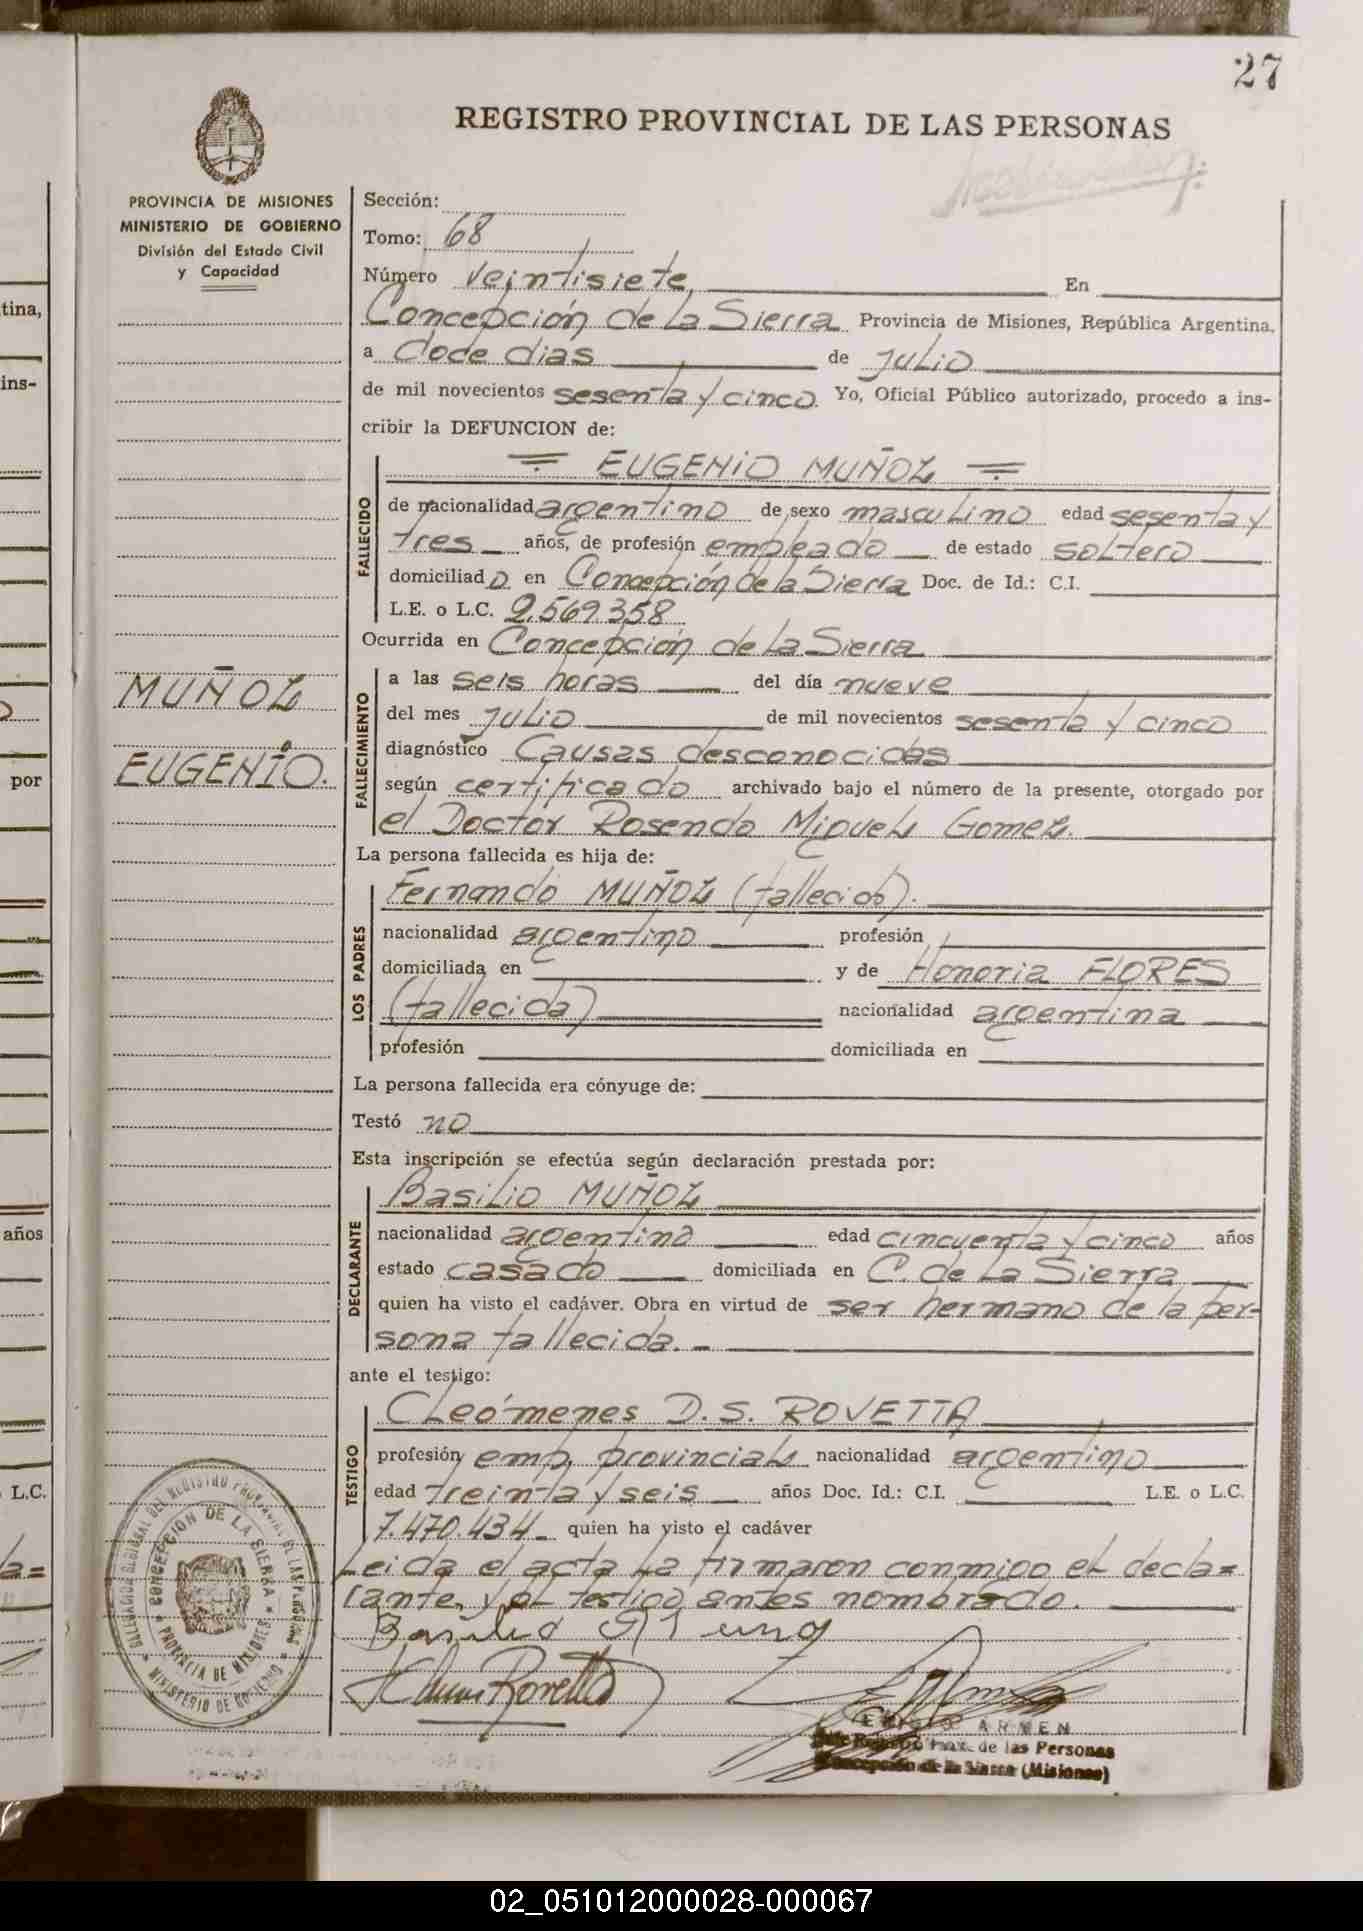 27
REGISTRO PROVINCIAL DE LAS PERSONAS
PROVINCIA DE MISIONES
MINISTERIO DE GOBIERNO
División del Estado Civil
y Capacidad
MUÑOZ
EUGENIO.
Sección:
Tomo: 68
Número veintisiete, En
Concepción de La Sierra Provincia de Misiones, República Argentina,
a doce dias de julio
de mil novecientos sesenta y cinco. Yo, Oficial Público autorizado, procedo a ins-
cribir la DEFUNCION de:
= EUGENIO MUÑOZ =
FALLECIDO
de nacionalidad argentino de sexo masculino edad sesenta y
tres años, de profesión empleado de estado soltero
domiciliado en Concepción de la Sierra Doc. de Id.: C.I.
L.E. o L.C. 2.569.358
Ocurrida en Concepción de La Sierra
FALLECIMIENTO
a las seis horas del día nueve
del mes julio de mil novecientos sesenta y cinco
diagnóstico Causas desconocidas
según certificado archivado bajo el número de la presente, otorgado por
el Doctor Rosendo Miguel Gomez.
La persona fallecida es hija de:
LOS PADRES
Fernando MUÑOZ (fallecido).
nacionalidad argentino profesión
domiciliada en y de Honoria FLORES
(fallecida) nacionalidad argentina
profesión domiciliada en
La persona fallecida era cónyuge de:
Testó no
Esta inscripción se efectúa según declaración prestada por:
DECLARANTE
Basilio MUÑOZ
nacionalidad argentino edad cincuenta y cinco años
estado casado domiciliada en C. de La Sierra
quien ha visto el cadáver. Obra en virtud de ser hermano de la per-
sona fallecida. -
ante el testigo:
TESTIGO
Cleómenes D. S. ROVETTA
profesión emp. provincial nacionalidad argentino
edad treinta y seis años Doc. Id.: C.I. L.E. o L.C.
7.470.434 - quien ha visto el cadáver
Leida el acta La firmaron conmigo el decla=
rante, y el testigo antes nombrado.
Basilio Muños
Rovetta
DELEGACION REGIONAL DEL REGISTRO PROVINCIAL DE LAS PERSONAS
CONCEPCION DE LA SIERRA
PROVINCIA DE MISIONES
MINISTERIO DE GOBIERNO
ARMEN
de las Personas
Concepción de la Sierra (Misiones)
tina,
ins-
por
años
L.C.
02_051012000028-000067